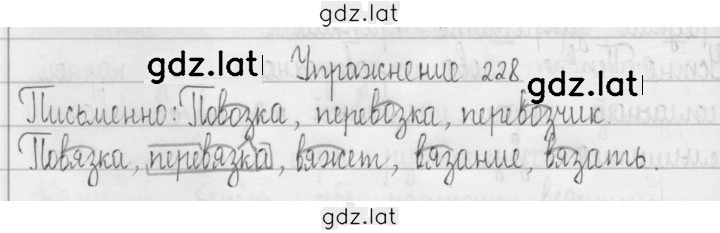 gdz.lat
Упражнение 228
gdz.lat
gdz.lat
Письменно: Повозка, перевозка, перевозчик
Повязка, перевязка, вяжет, вязание, вязать.
gdz.lat